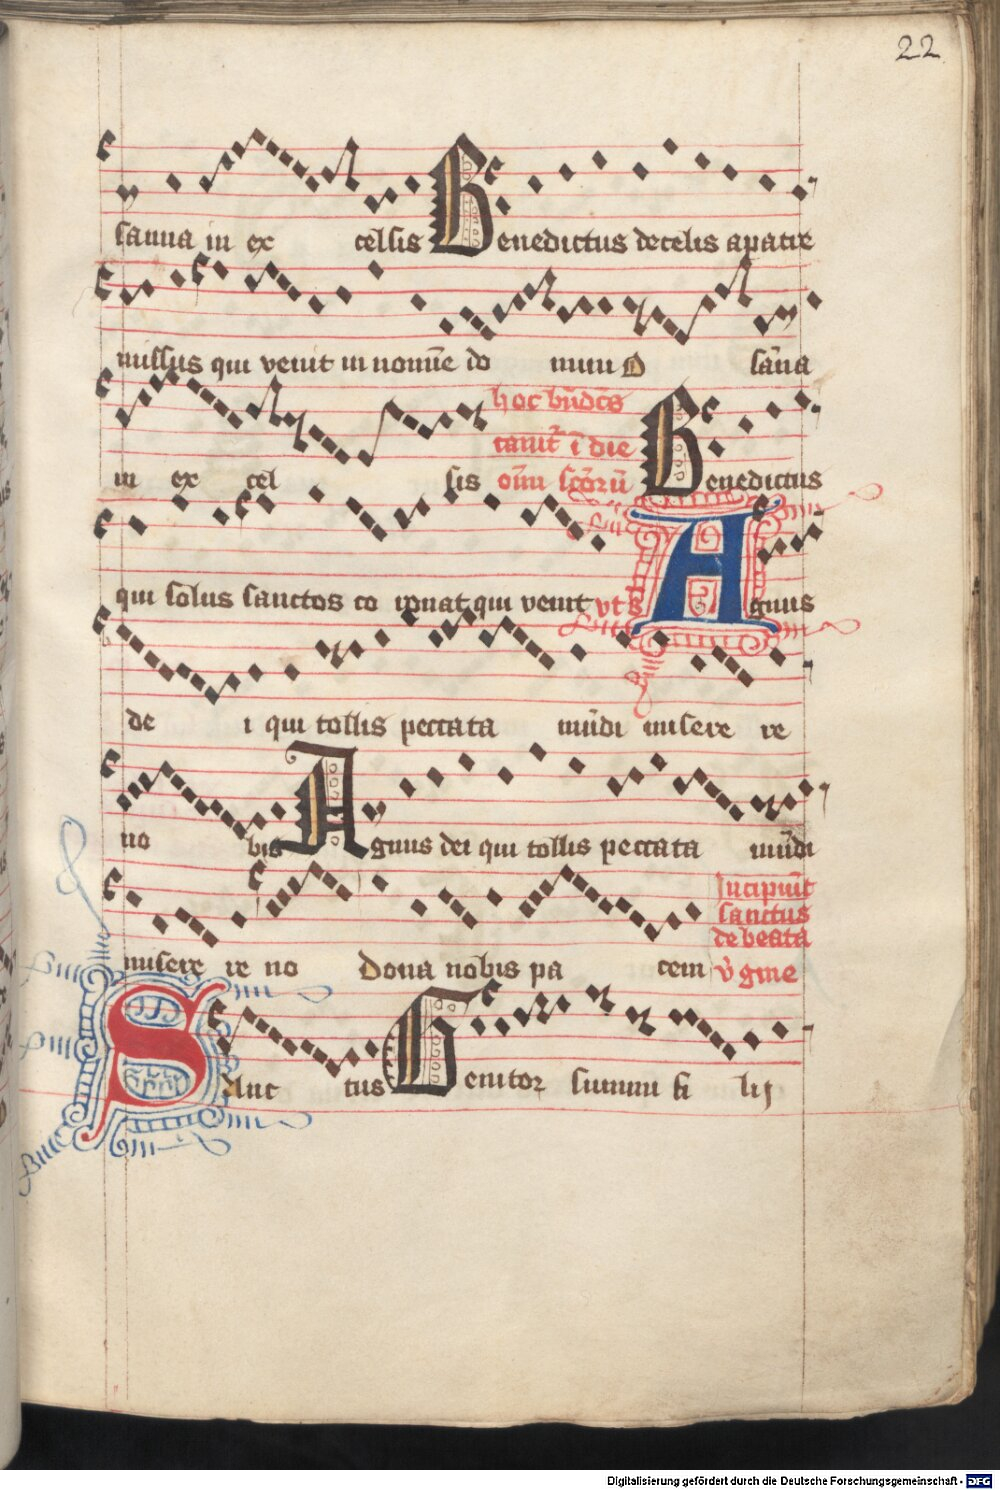 22
sanna in ex celsis Benedictus de celis a patre
missus qui venit in nomīe do mini O sāna
hoc bn̄dcs̄
cantr̄ ī die
in ex cel sis oīm sc̄orū Benedictus
qui solus sanctos co ronat qui venit vt s Agnus
de i qui tollis peccata mūdi misere re
no bis Agnus dei qui tollis peccata mūdi
Incipiūt
sanctus
de beata
misere re no Dona nobis pa cem v̄gine
Sanc tus Genitor summi fi lij
Digitalisierung gefördert durch die Deutsche Forschungsgemeinschaft - DFG